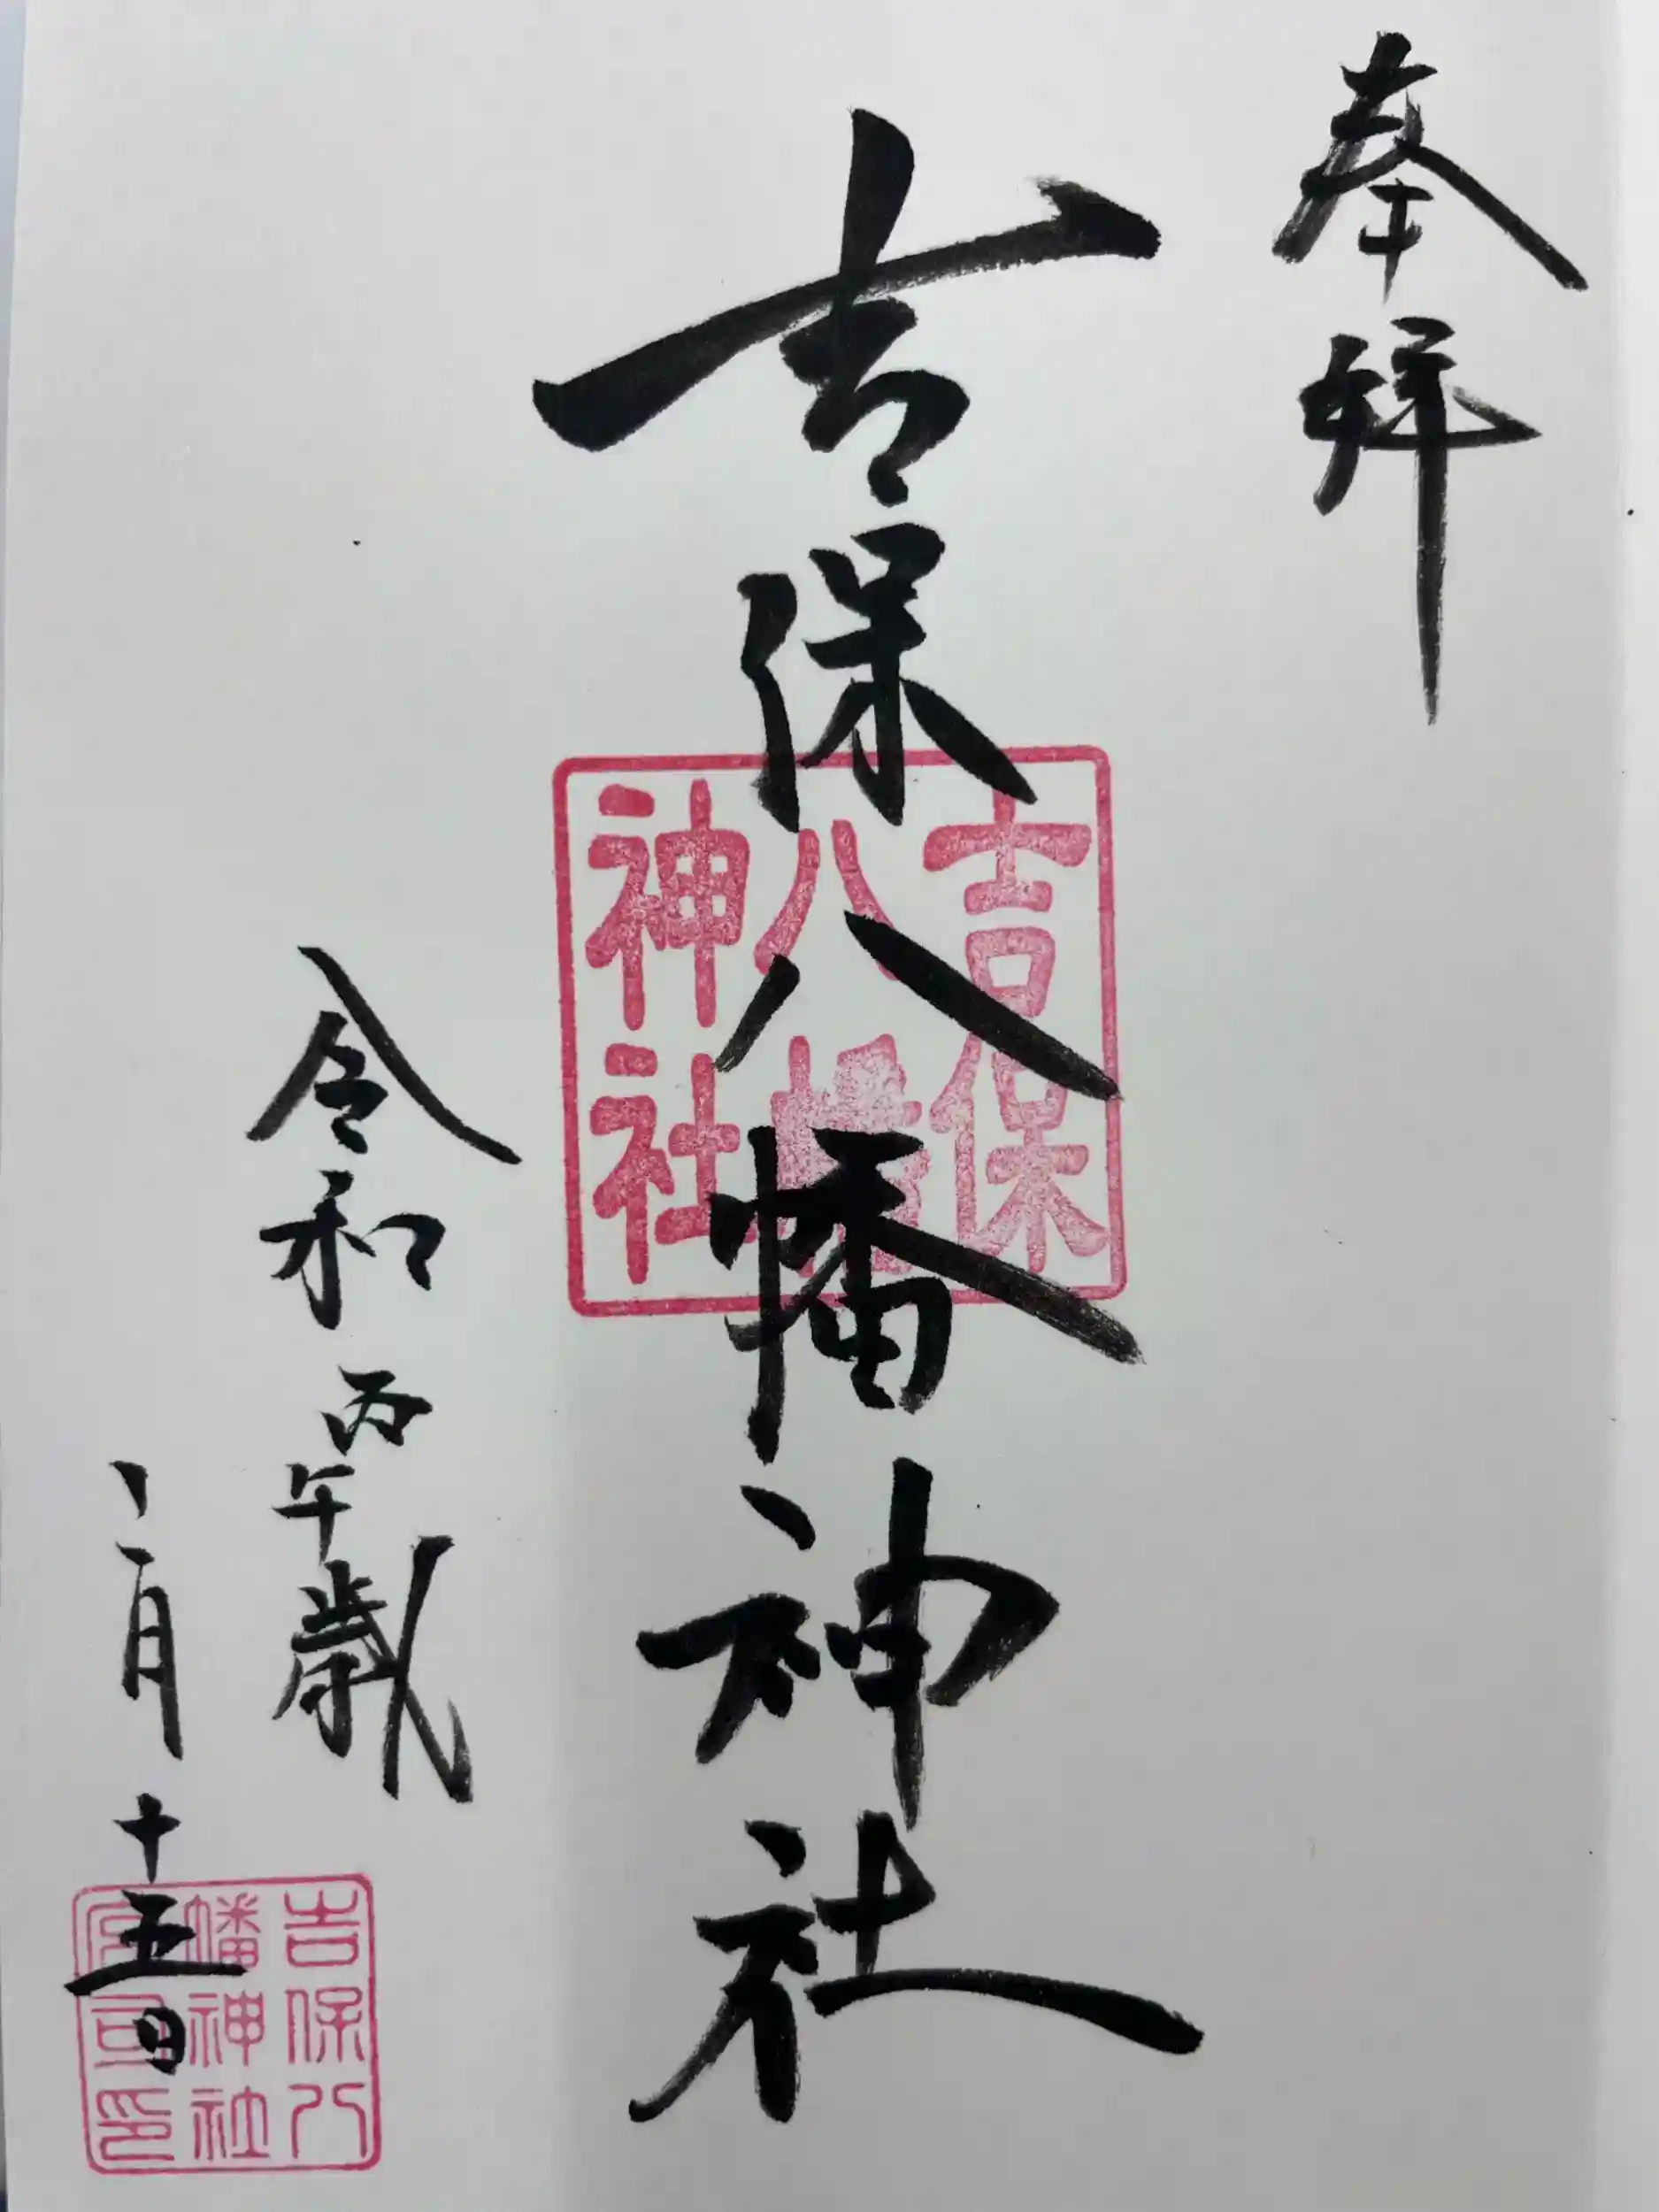 奉拜
吉保八幡神社
吉保
八幡
神社
令和丙午歳
二月十五日
吉保八
幡神社
宮司印